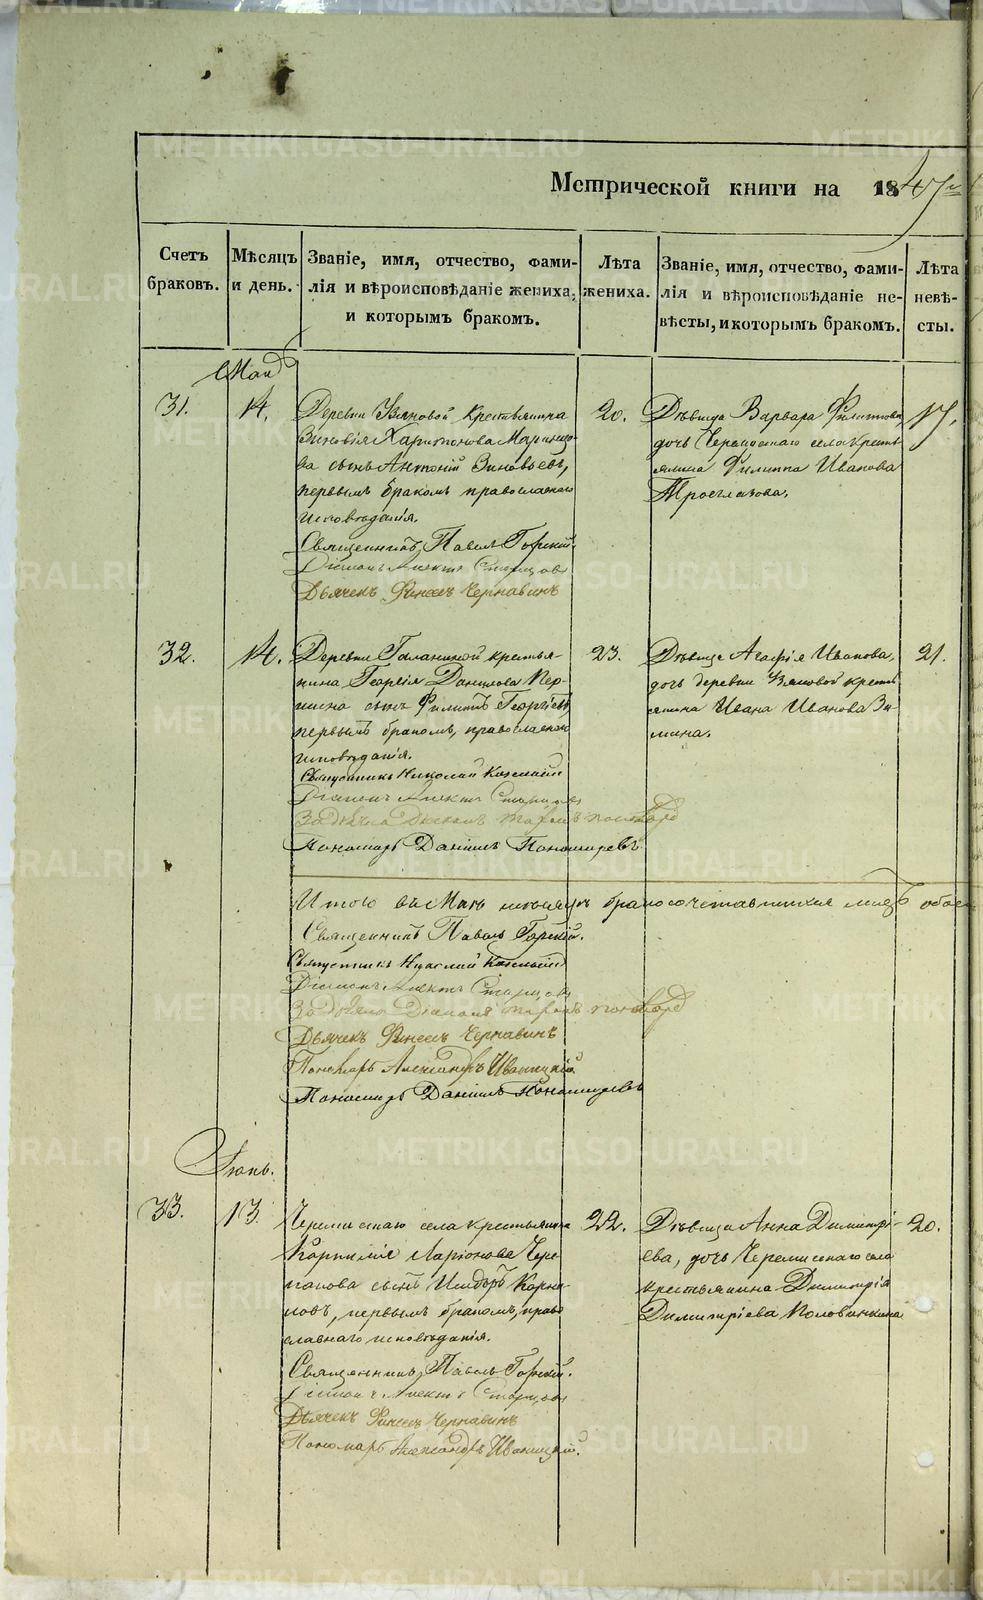 Метрической книги на 1847
Счетъ браковъ.
Мѣсяцъ и день.
Званіе, имя, отчество, фами-
лія и вѣроисповѣданіе жениха,
и которымъ бракомъ.
Лѣта жениха.
Званіе, имя, отчество, фами-
лія и вѣроисповѣданіе не-
вѣсты, и которымъ бракомъ.
Лѣта невѣ-
сты.
Май
31.
14.
Деревни Узяновой крестьянина
Зиновія Харитонова
ва сынъ Антоній Зиновьевъ,
первымъ бракомъ православнаго
исповѣданія.
Священникъ Павелъ Горскій.
Діаконъ Старцовъ
Дьячекъ Финеесъ Чернавинъ
20.
Дѣвица Варвара Филиппова,
дочь Черемисскаго села кресть-
янина Филиппа Иванова
Троеглазова.
17.
32.
14.
Деревни Галаниной крестья-
нина Георгія Данилова Пер-
шина сынъ Филиппъ Георгіевъ,
первымъ бракомъ, православнаго
исповѣданія.
Священникъ Николай
Діаконъ Старцовъ
Пономарь Даніилъ Пономаревъ
23.
Дѣвица Агафія Иванова,
дочь деревни Узяновой кресть-
янина Ивана Иванова Зи-
мина.
21.
Итого въ Маѣ мѣсяцѣ бракосочетавшихся лицъ обоего
Священникъ Павелъ Горскій.
Священникъ Николай
Діаконъ Старцовъ
Дьячекъ Финеесъ Чернавинъ
Пономарь Александръ Иваницкій
Пономарь Даніилъ Пономаревъ
Іюнь.
33.
13.
Черемисскаго села крестьянина
Корнилія Ларіонова Чере-
панова сынъ Исидоръ Корни-
ловъ, первымъ бракомъ, право
славнаго исповѣданія.
Священникъ Павелъ Горскій.
Діаконъ Старцовъ
Дьячекъ Финеесъ Чернавинъ
Пономарь Александръ Иваницкій.
22.
Дѣвица Анна Димитрі-
ева, дочь Черемисскаго села
крестьянина Димитрія
Димитріева Половинкина
20.
METRIKI.GASO-URAL.RU